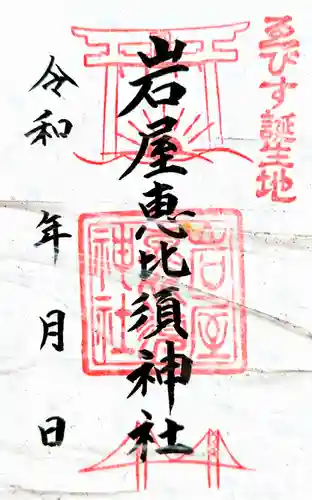 ゑびす誕生地
岩屋恵比須神社
岩屋
恵比須
神社
令和 年 月 日